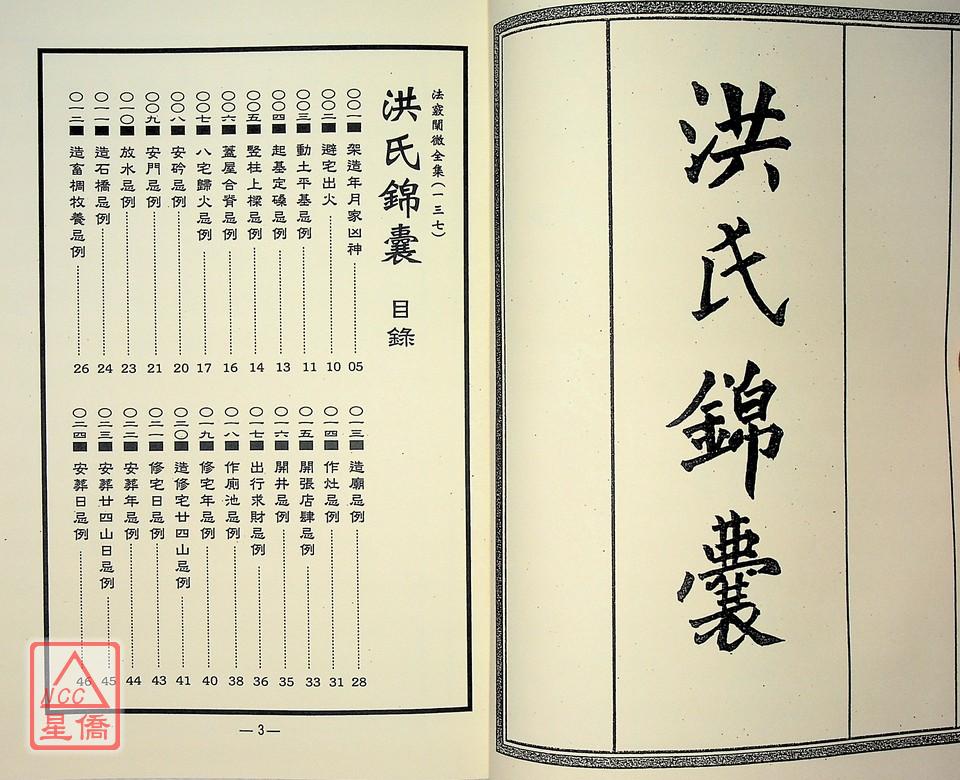 洪氏錦囊
法竅闡微全集（一三七）
洪氏錦囊 目錄
〇〇一■架造年月家凶神……05
〇〇二■避宅出火……10
〇〇三■動土平基忌例……11
〇〇四■起基定磉忌例……13
〇〇五■竪柱上樑忌例……14
〇〇六■蓋屋合脊忌例……16
〇〇七■八宅歸火忌例……17
〇〇八■安砛忌例……20
〇〇九■安門忌例……21
〇一〇■放水忌例……23
〇一一■造石橋忌例……24
〇一二■造畜椆牧養忌例……26
〇一三■造廟忌例……28
〇一四■作灶忌例……31
〇一五■開張店肆忌例……33
〇一六■開井忌例……35
〇一七■出行求財忌例……36
〇一八■作廁池忌例……38
〇一九■修宅年忌例……40
〇二〇■造修宅廿四山忌例……41
〇二一■修宅日忌例……43
〇二二■安葬年忌例……44
〇二三■安葬廿四山日忌例……45
〇二四■安葬日忌例……46
—3—
NCC
星僑